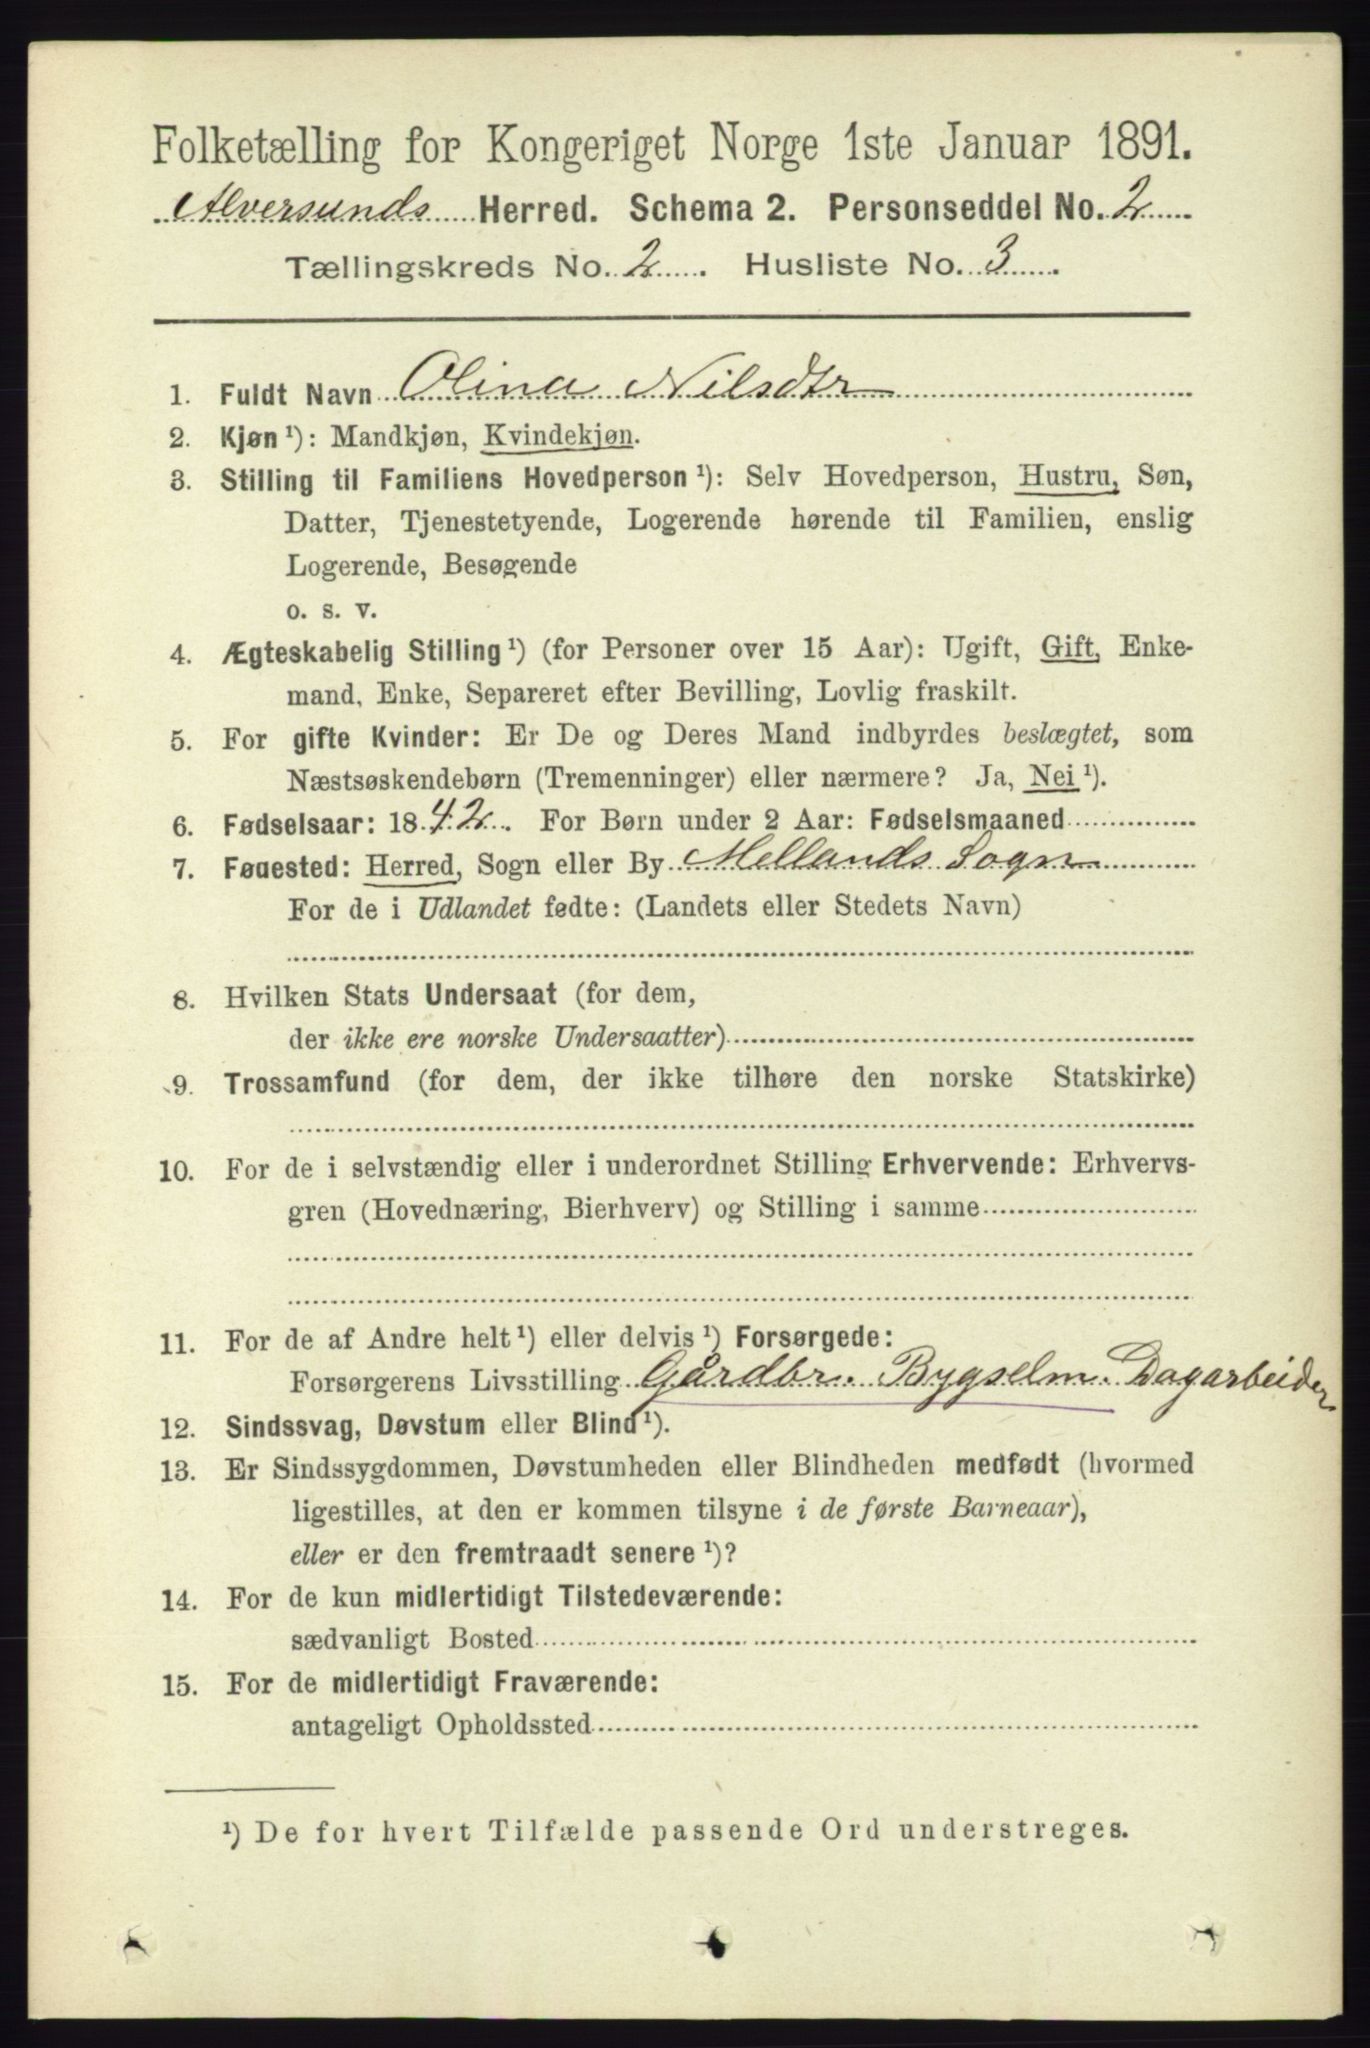 Folketælling for Kongeriget Norge 1ste Januar 1891.
Alversunds Herred. Schema 2. Personseddel No. 2
Tællingskreds No. 2 Husliste No. 3
1. Fuldt Navn Olina Nilsdtr
2. Kjøn ¹): Mandkjøn, Kvindekjøn.
3. Stilling til Familiens Hovedperson ¹): Selv Hovedperson, Hustru, Søn,
Datter, Tjenestetyende, Logerende hørende til Familien, enslig
Logerende, Besøgende
o. s. v.
4. Ægteskabelig Stilling ¹) (for Personer over 15 Aar): Ugift, Gift, Enke-
mand, Enke, Separeret efter Bevilling, Lovlig fraskilt.
5. For gifte Kvinder: Er De og Deres Mand indbyrdes beslægtet, som
Næstsøskendebørn (Tremenninger) eller nærmere? Ja, Nei ¹).
6. Fødselsaar: 1842. For Børn under 2 Aar: Fødselsmaaned
7. Føuested: Herred, Sogn eller By Mellands Sogn
For de i Udlandet fødte: (Landets eller Stedets Navn)
8. Hvilken Stats Undersaat (for dem,
der ikke ere norske Undersaatter)
9. Trossamfund (for dem, der ikke tilhøre den norske Statskirke)
10. For de i selvstændig eller i underordnet Stilling Erhvervende: Erhvervs-
gren (Hovednæring, Bierhverv) og Stilling i samme
11. For de af Andre helt ¹) eller delvis ¹) Forsørgede:
Forsørgerens Livsstilling Gårdbr. Bygselm. Dagarbeider
12. Sindssvag, Døvstum eller Blind ¹).
13. Er Sindssygdommen, Døvstumheden eller Blindheden medfødt (hvormed
ligestilles, at den er kommen tilsyne i de første Barneaar),
eller er den fremtraadt senere ¹)?
14. For de kun midlertidigt Tilstedeværende:
sædvanligt Bosted
15. For de midlertidigt Fraværende:
antageligt Opholdssted
¹) De for hvert Tilfælde passende Ord understreges.